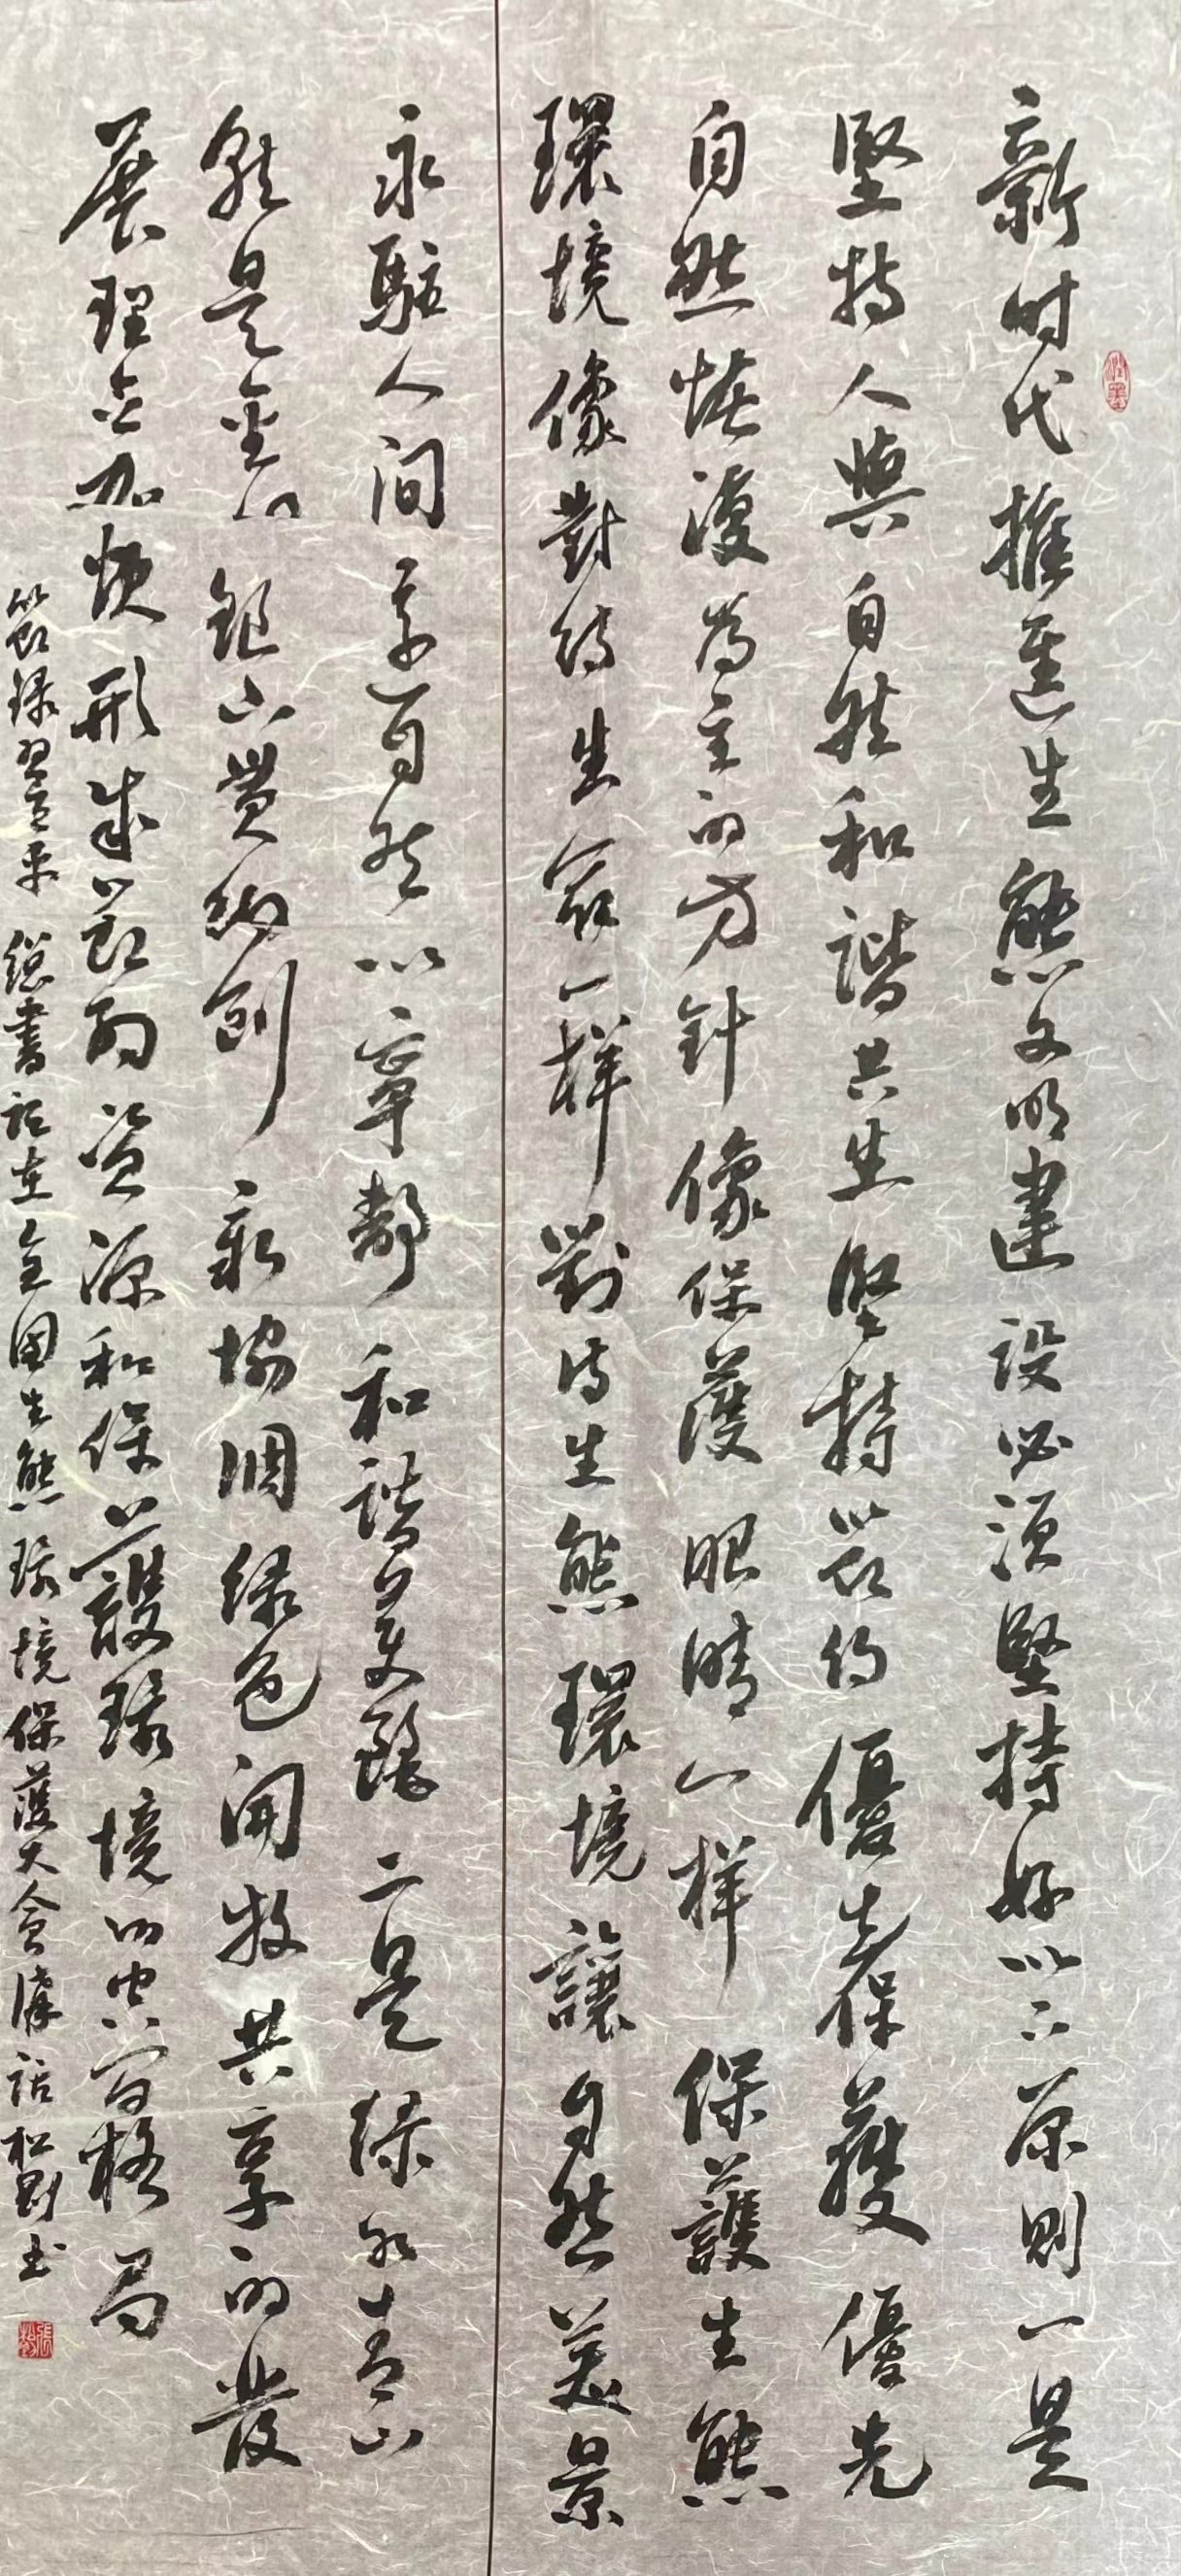 新时代推進生態文明建设必須堅持好以下原则一是
堅持人與自然和諧共生堅持節约優先保護優先
自然恢復为主的方针像保護眼睛一样保護生態
環境像對待生命一样對待生態環境讓自然美景
永駐人间享自然以寧靜和諧美麗二是绿水青山
就是金山银山贯彻创新协调绿色开放共享的發
展理念加快形成節约资源和保護环境的空间格局
節录習近平总書记在全国生態环境保護大会講话松刚书